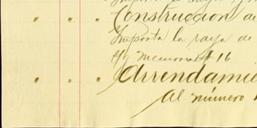 Construccion de
Importa la raya de
Hy Memorias # 16
Arrendamie
Al número